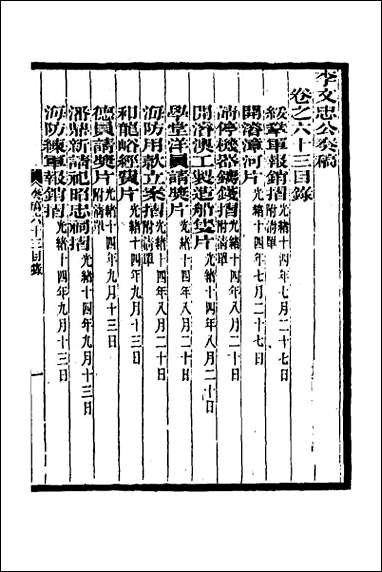 李文忠公奏稿
卷之六十三目錄
綏鞏軍報銷摺附清單 光緒十四年七月二十七日
開濬漳河片 光緒十四年七月二十七日
請停機器鑄錢摺附清單 光緒十四年八月二十日
開濬澳工製造船隻片 光緒十四年八月二十日
學堂洋員請獎片 光緒十四年八月二十日
海防用款立案摺附清單 光緒十四年八月二十日
和龍峪經費片 光緒十四年九月十三日
德員請獎片附清單 光緒十四年九月十三日
潘鼎新請祀昭忠祠摺 光緒十四年九月十三日
海防練軍報銷摺 光緒十四年九月十三日
奏稿六十三目錄
一